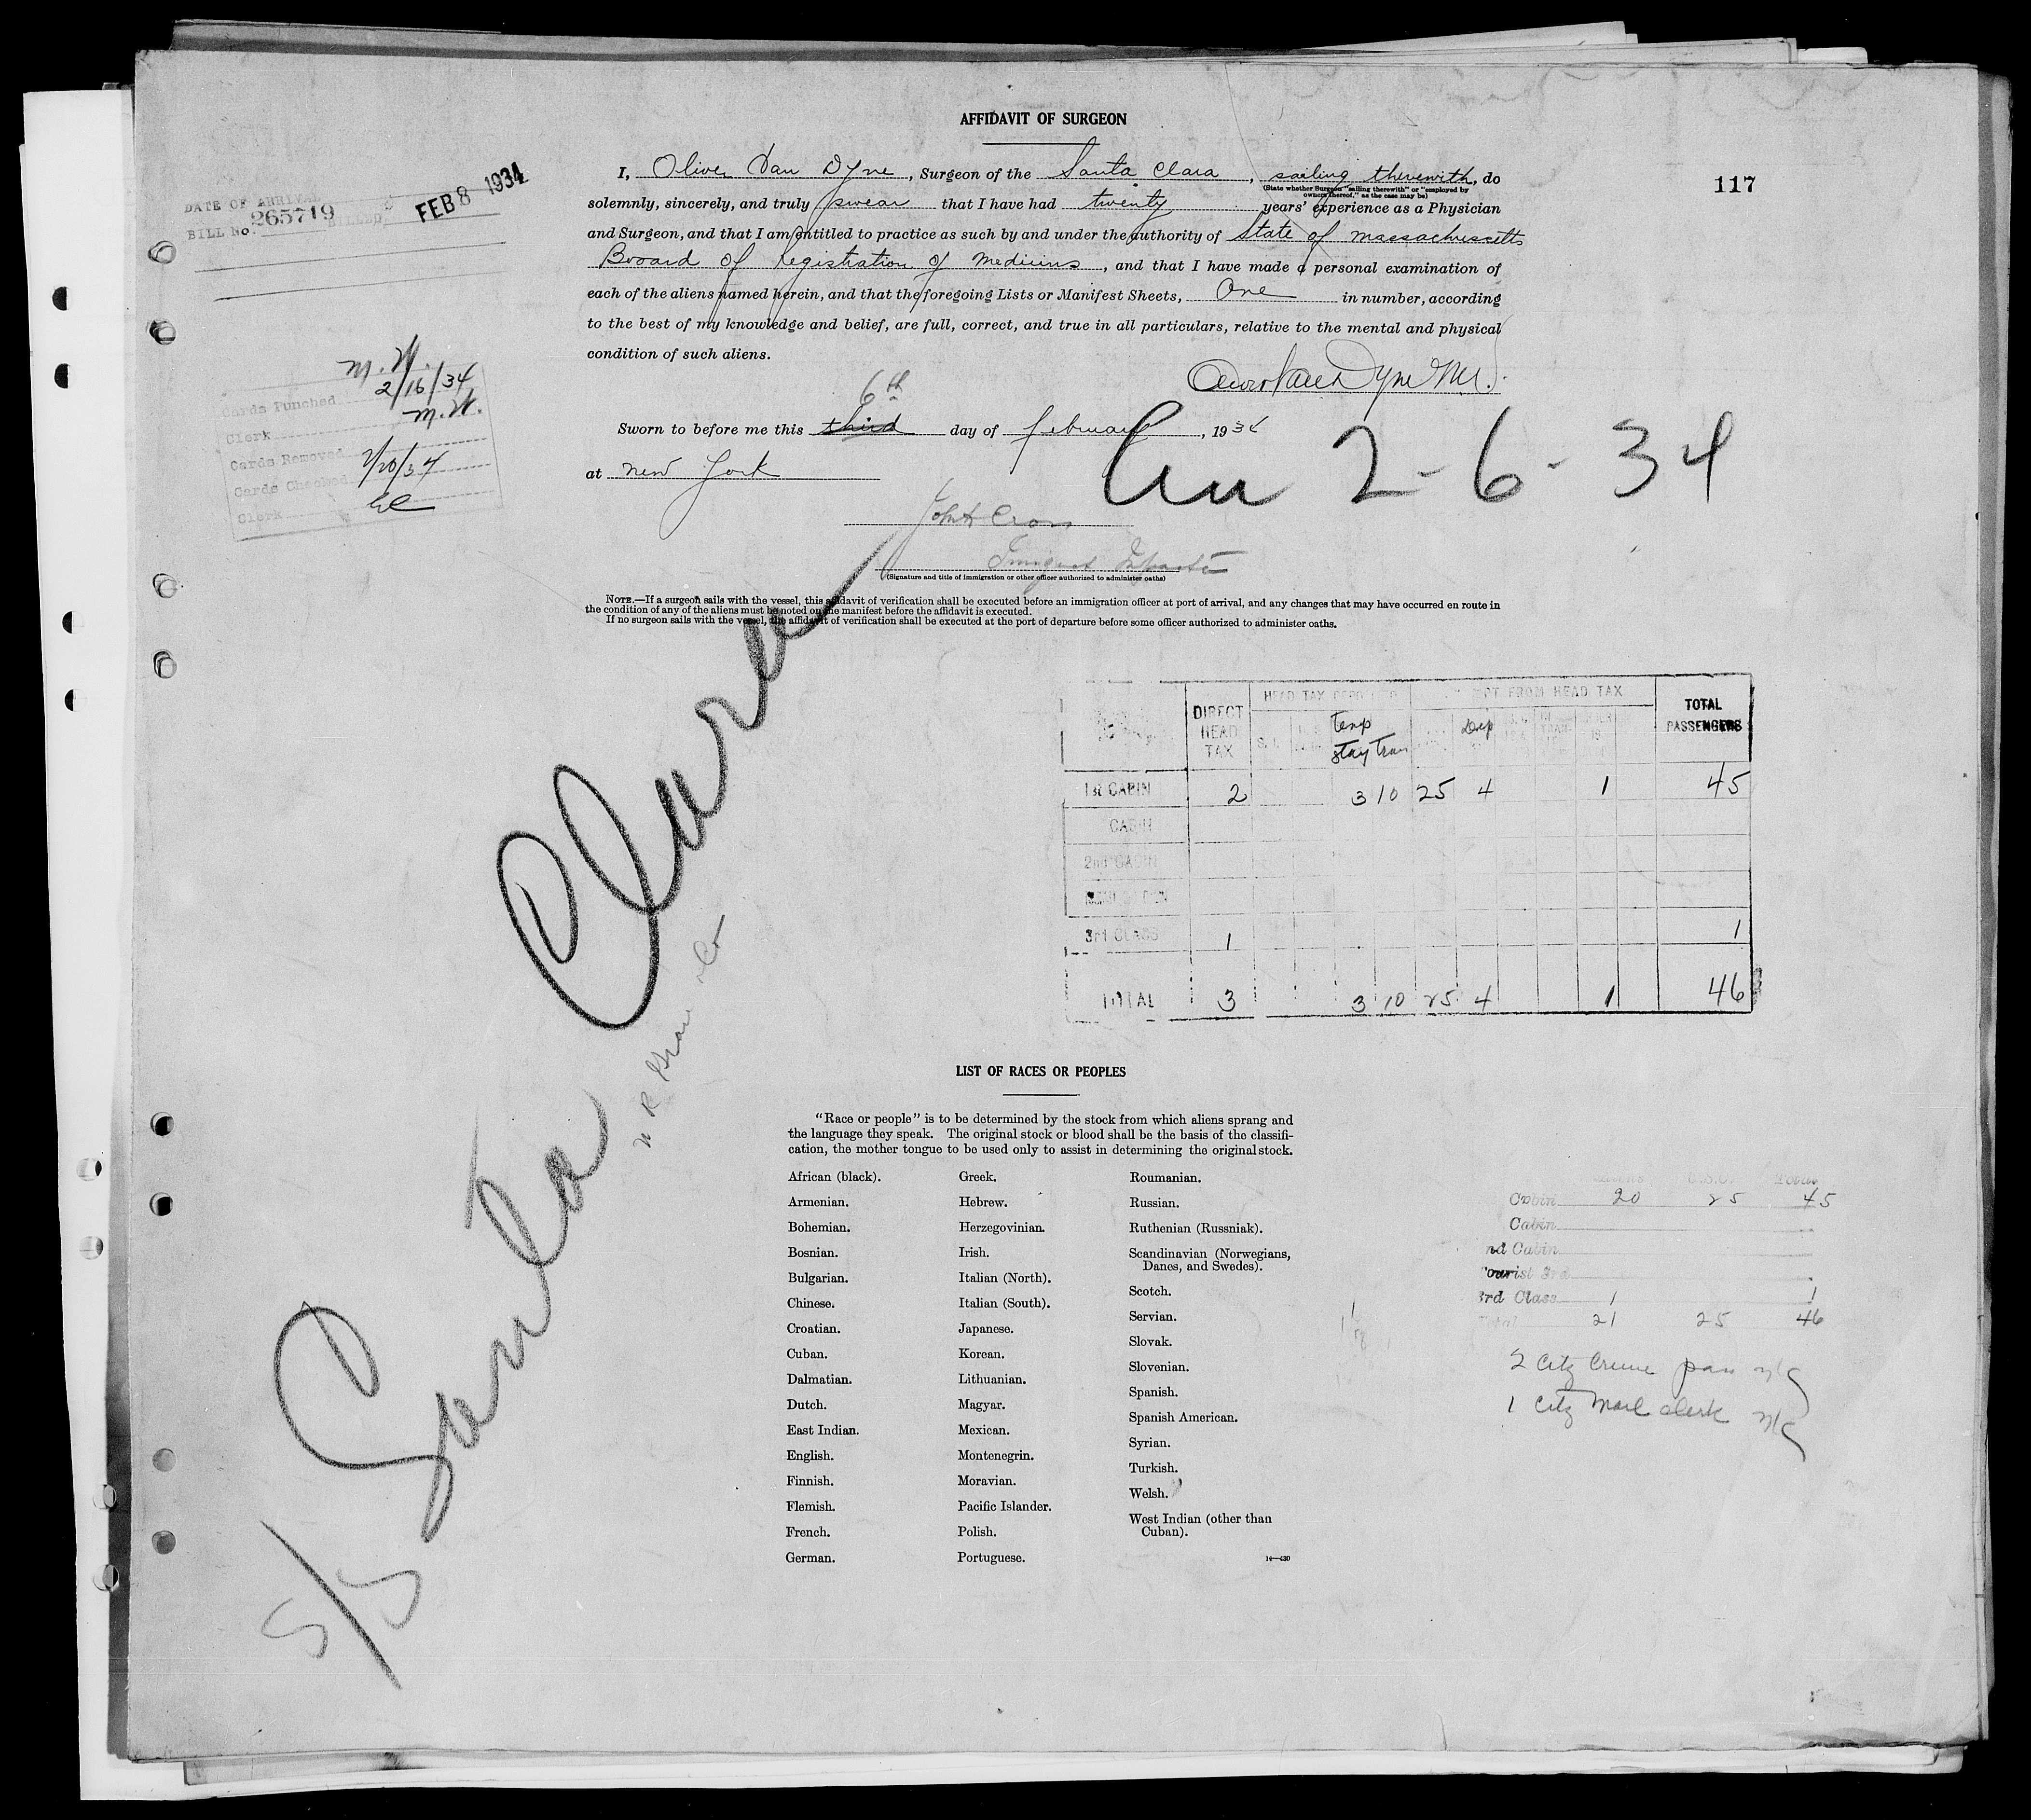 AFFIDAVIT OF SURGEON
117
I, Oliver Van Dyne, Surgeon of the Santa Clara, sailing therewith, do
(State whether Surgeon "sailing therewith" or "employed by owners thereof," as the case may be)
solemnly, sincerely, and truly swear that I have had twenty years' experience as a Physician
and Surgeon, and that I am entitled to practice as such by and under the authority of State of Massachusetts
Booard of Registration of Medicins, and that I have made a personal examination of
each of the aliens named herein, and that the foregoing Lists or Manifest Sheets, One in number, according
to the best of my knowledge and belief, are full, correct, and true in all particulars, relative to the mental and physical
condition of such aliens.
Oliver Van Dyne M.D.
6th
Sworn to before me this third day of february, 1934
at new York
2-6-34
John Cross
(Signature and title of immigration or other officer authorized to administer oaths)
NOTE.—If a surgeon sails with the vessel, this affidavit of verification shall be executed before an immigration officer at port of arrival, and any changes that may have occurred en route in
the condition of any of the aliens must be noted on the manifest before the affidavit is executed.
If no surgeon sails with the vessel, the affidavit of verification shall be executed at the port of departure before some officer authorized to administer oaths.
DATE OF ARRIVAL FEB 8 1934
BILL No. 265719 BILLED
M. W.
Cards Punched 2/16/34
Clerk M.W.
Cards Removed
Cards Checked 2/20/34
Clerk
S/S Santa Clara
DIRECT HEAD TAX
HEAD TAX
FROM HEAD TAX
TOTAL PASSENGERS
Temp stay Tran Dip
1st CABIN 2 3 10 25 4 1 45
CABIN
2nd CABIN
3rd CLASS 1 1
TOTAL 3 3 10 25 4 1 46
LIST OF RACES OR PEOPLES
"Race or people" is to be determined by the stock from which aliens sprang and
the language they speak. The original stock or blood shall be the basis of the classifi-
cation, the mother tongue to be used only to assist in determining the original stock.
African (black).
Armenian.
Bohemian.
Bosnian.
Bulgarian.
Chinese.
Croatian.
Cuban.
Dalmatian.
Dutch.
East Indian.
English.
Finnish.
Flemish.
French.
German.
Greek.
Hebrew.
Herzegovinian.
Irish.
Italian (North).
Italian (South).
Japanese.
Korean.
Lithuanian.
Magyar.
Mexican.
Montenegrin.
Moravian.
Pacific Islander.
Polish.
Portuguese.
Roumanian.
Russian.
Ruthenian (Russniak).
Scandinavian (Norwegians,
Danes, and Swedes).
Scotch.
Servian.
Slovak.
Slovenian.
Spanish.
Spanish American.
Syrian.
Turkish.
Welsh.
West Indian (other than
Cuban).
14—430
Total
Cabin 20 25 45
Cabin
nd Cabin
Tourist 3rd
3rd Class 1 1
Total 21 25 46
2 Citz Cruise pass n/c
1 Citz Mail clerk n/c